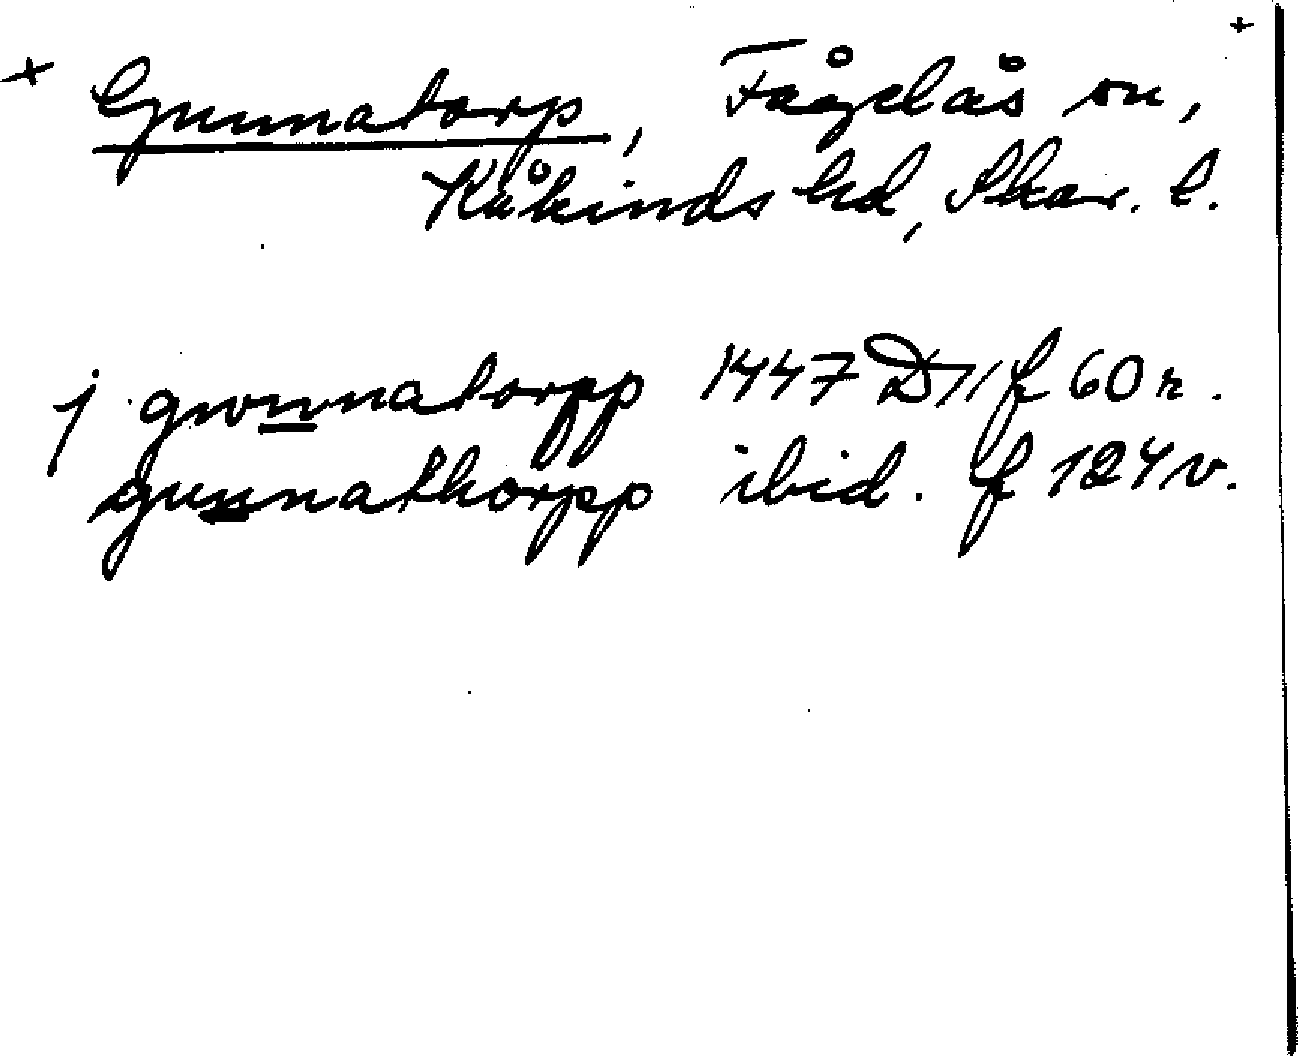 + Gunnatorp, Fågelås sn, +
Kåkinds hd, Skar. l.
j gwnnatorpp 1447 D 11 f 60 r.
gunnathorpp ibid. f 124 v.